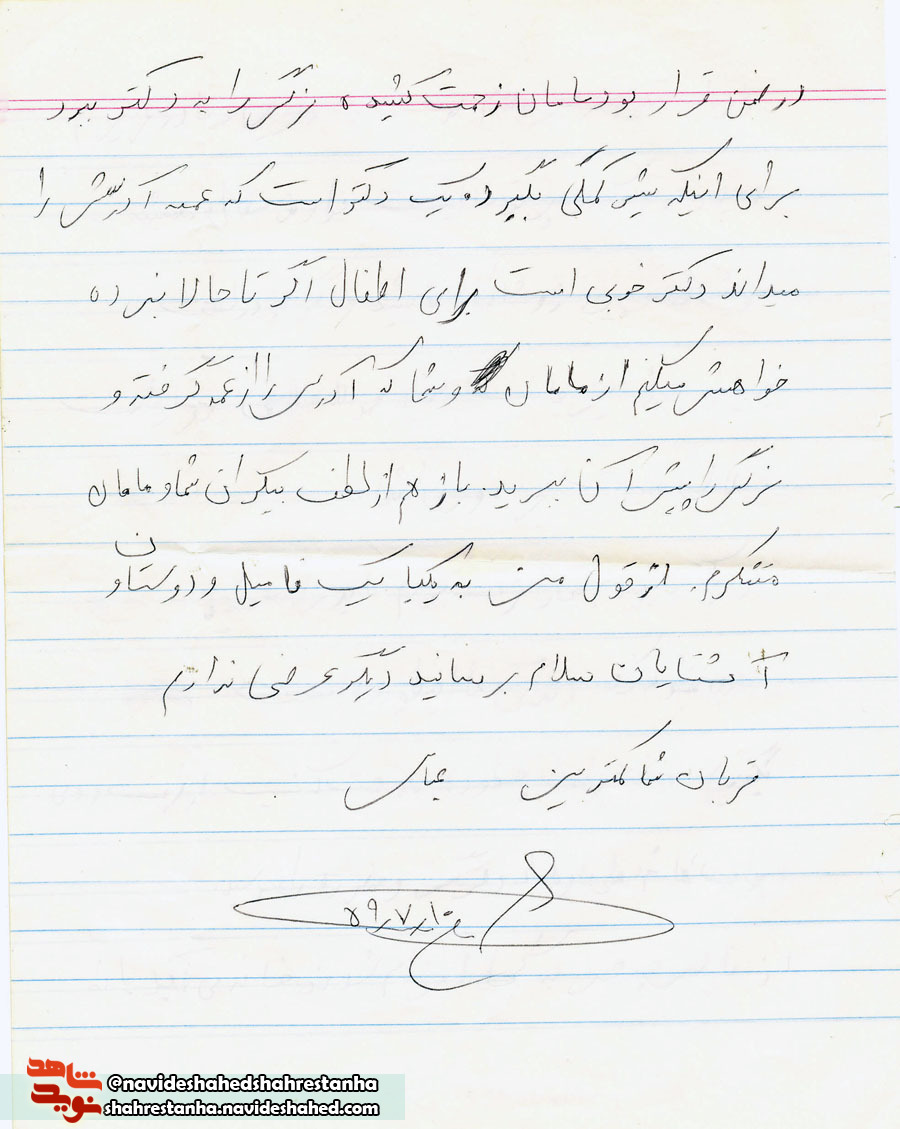 در ضمن قرار بود مامان زحمت کشیده نرگس را به دکتر ببرد
برای اینکه شیر کمکی بگیرد. یک دکتر است که عمه آدرسش را
میداند دکتر خوبی است برای اطفال اگر تا حالا نبرده
خواهش میکنم از مامان و شما که آدرس را از عمه گرفته و
نرگس را پیش آن ببرید. باز هم از لطف بیکران شما و مامان
متشکرم. از قول من به یکایک فامیل و دوستان و
آشنایان سلام برسانید دیگر عرضی ندارم
قربان شما کمترین عباس
۵۹/۷/۱۰
شاهد
نوید
@navideshahedshahrestanha
shahrestanha.navideshahed.com